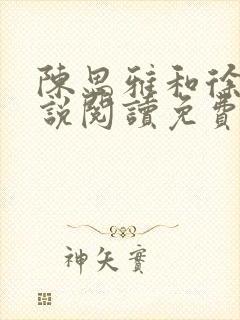 陳思雅和徐
說閱讀免費
神矢實